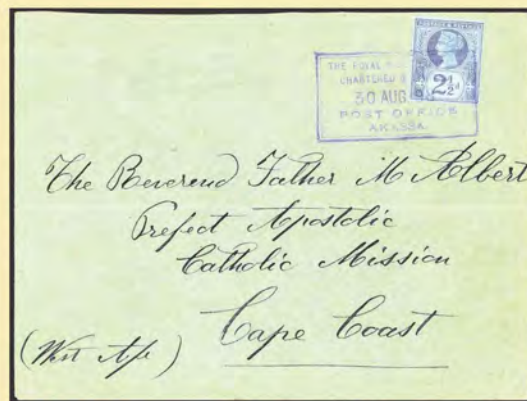 POSTAGE & REVENUE
2½d
THE ROYAL
CHARTERED &
30 AUG
POST OFFICE
AKASSA.
The Reverend Father M Albert
Prefect Apostolic
Catholic Mission
Cape Coast
(West Af )